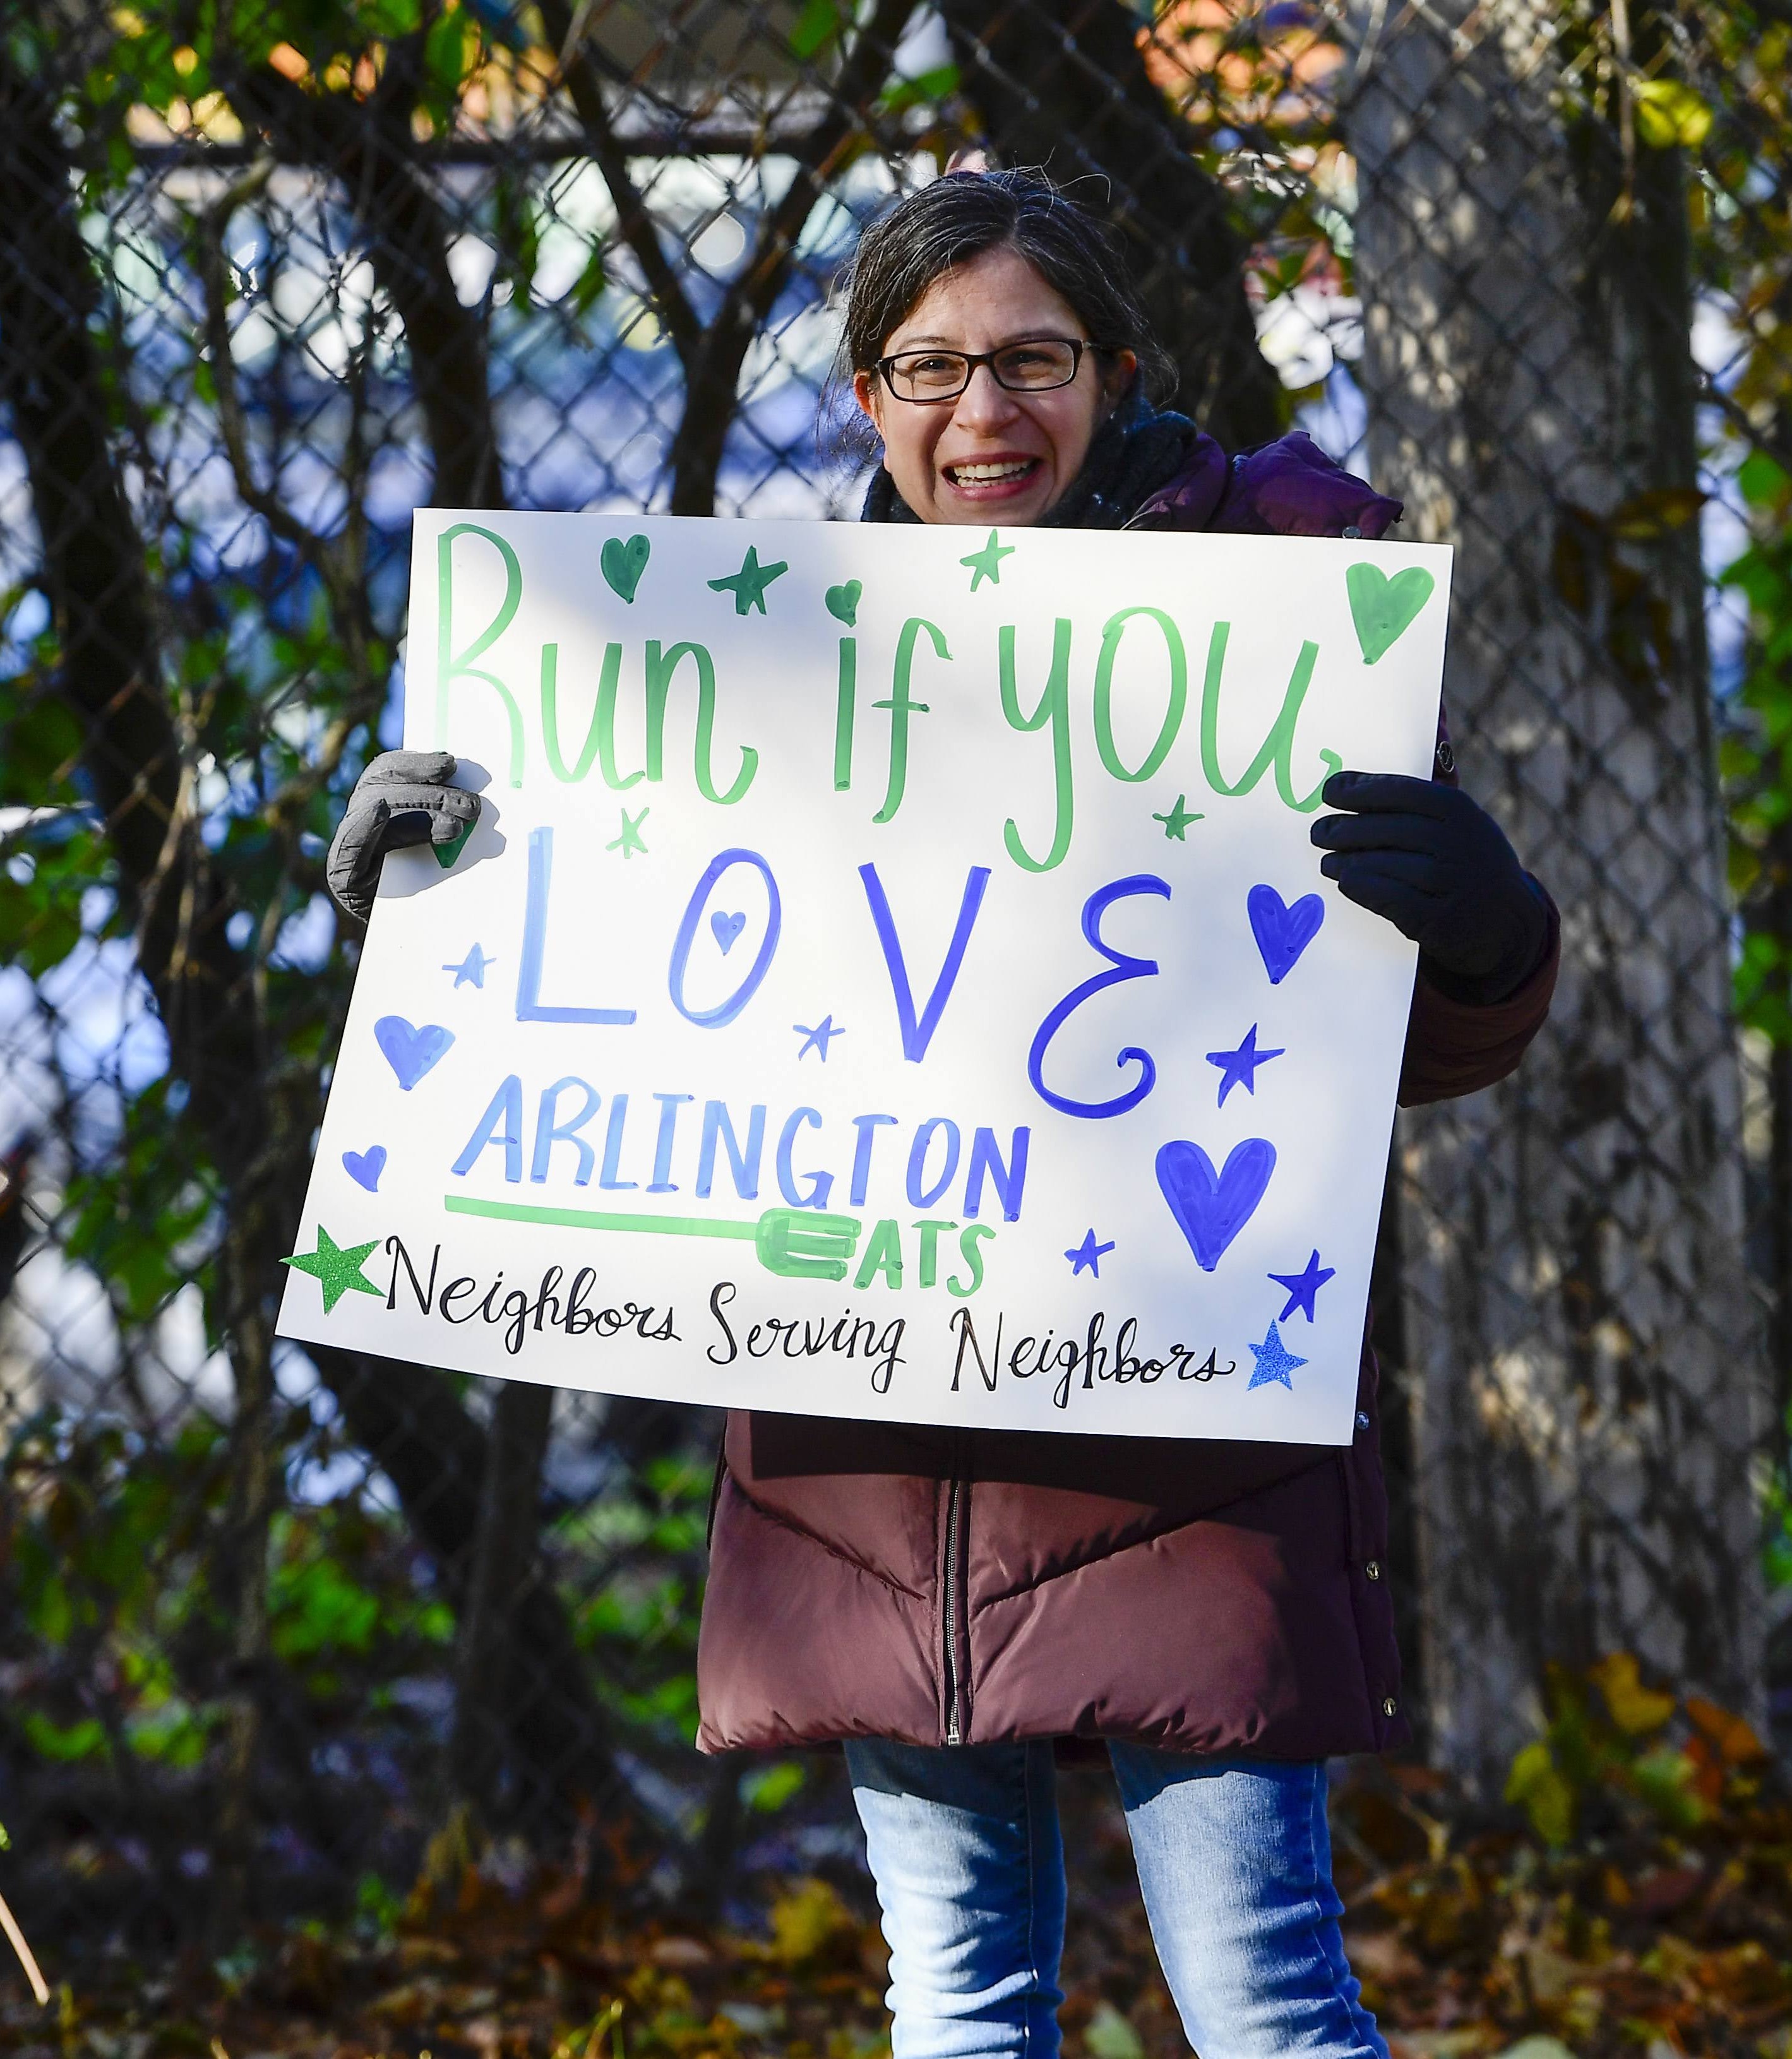 Run if you
LOVE
ARLINGTON
EATS
Neighbors Serving Neighbors